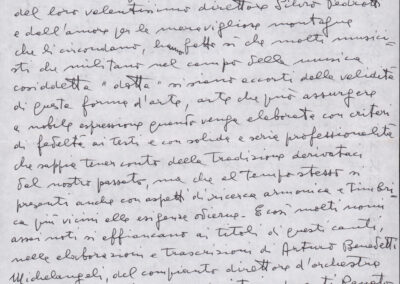 del loro valentissimo direttore Silvio Pedrotti
e dall'amore per le meravigliose montagne
che li circondano, ha fatto sì che molti musici-
sti che militano nel campo della musica
cosiddetta "dotta" si siano accorti della validità
di questa forma d'arte, arte che può assurgere
a nobile espressione quando venga elaborata con criteri
di fedeltà ai testi e con solida e seria professionalità
che sappia tener conto della tradizione derivataci
dal nostro passato, ma che al tempo stesso si
presenti anche con aspetti di ricerca armonica e timbri-
ca più vicini alle esigenze odierne. E così molti nomi
assai noti si affiancano ai titoli di questi canti,
nelle elaborazioni e trascrizioni di Arturo Benedetti
Michelangeli, del compianto direttore d'orchestra